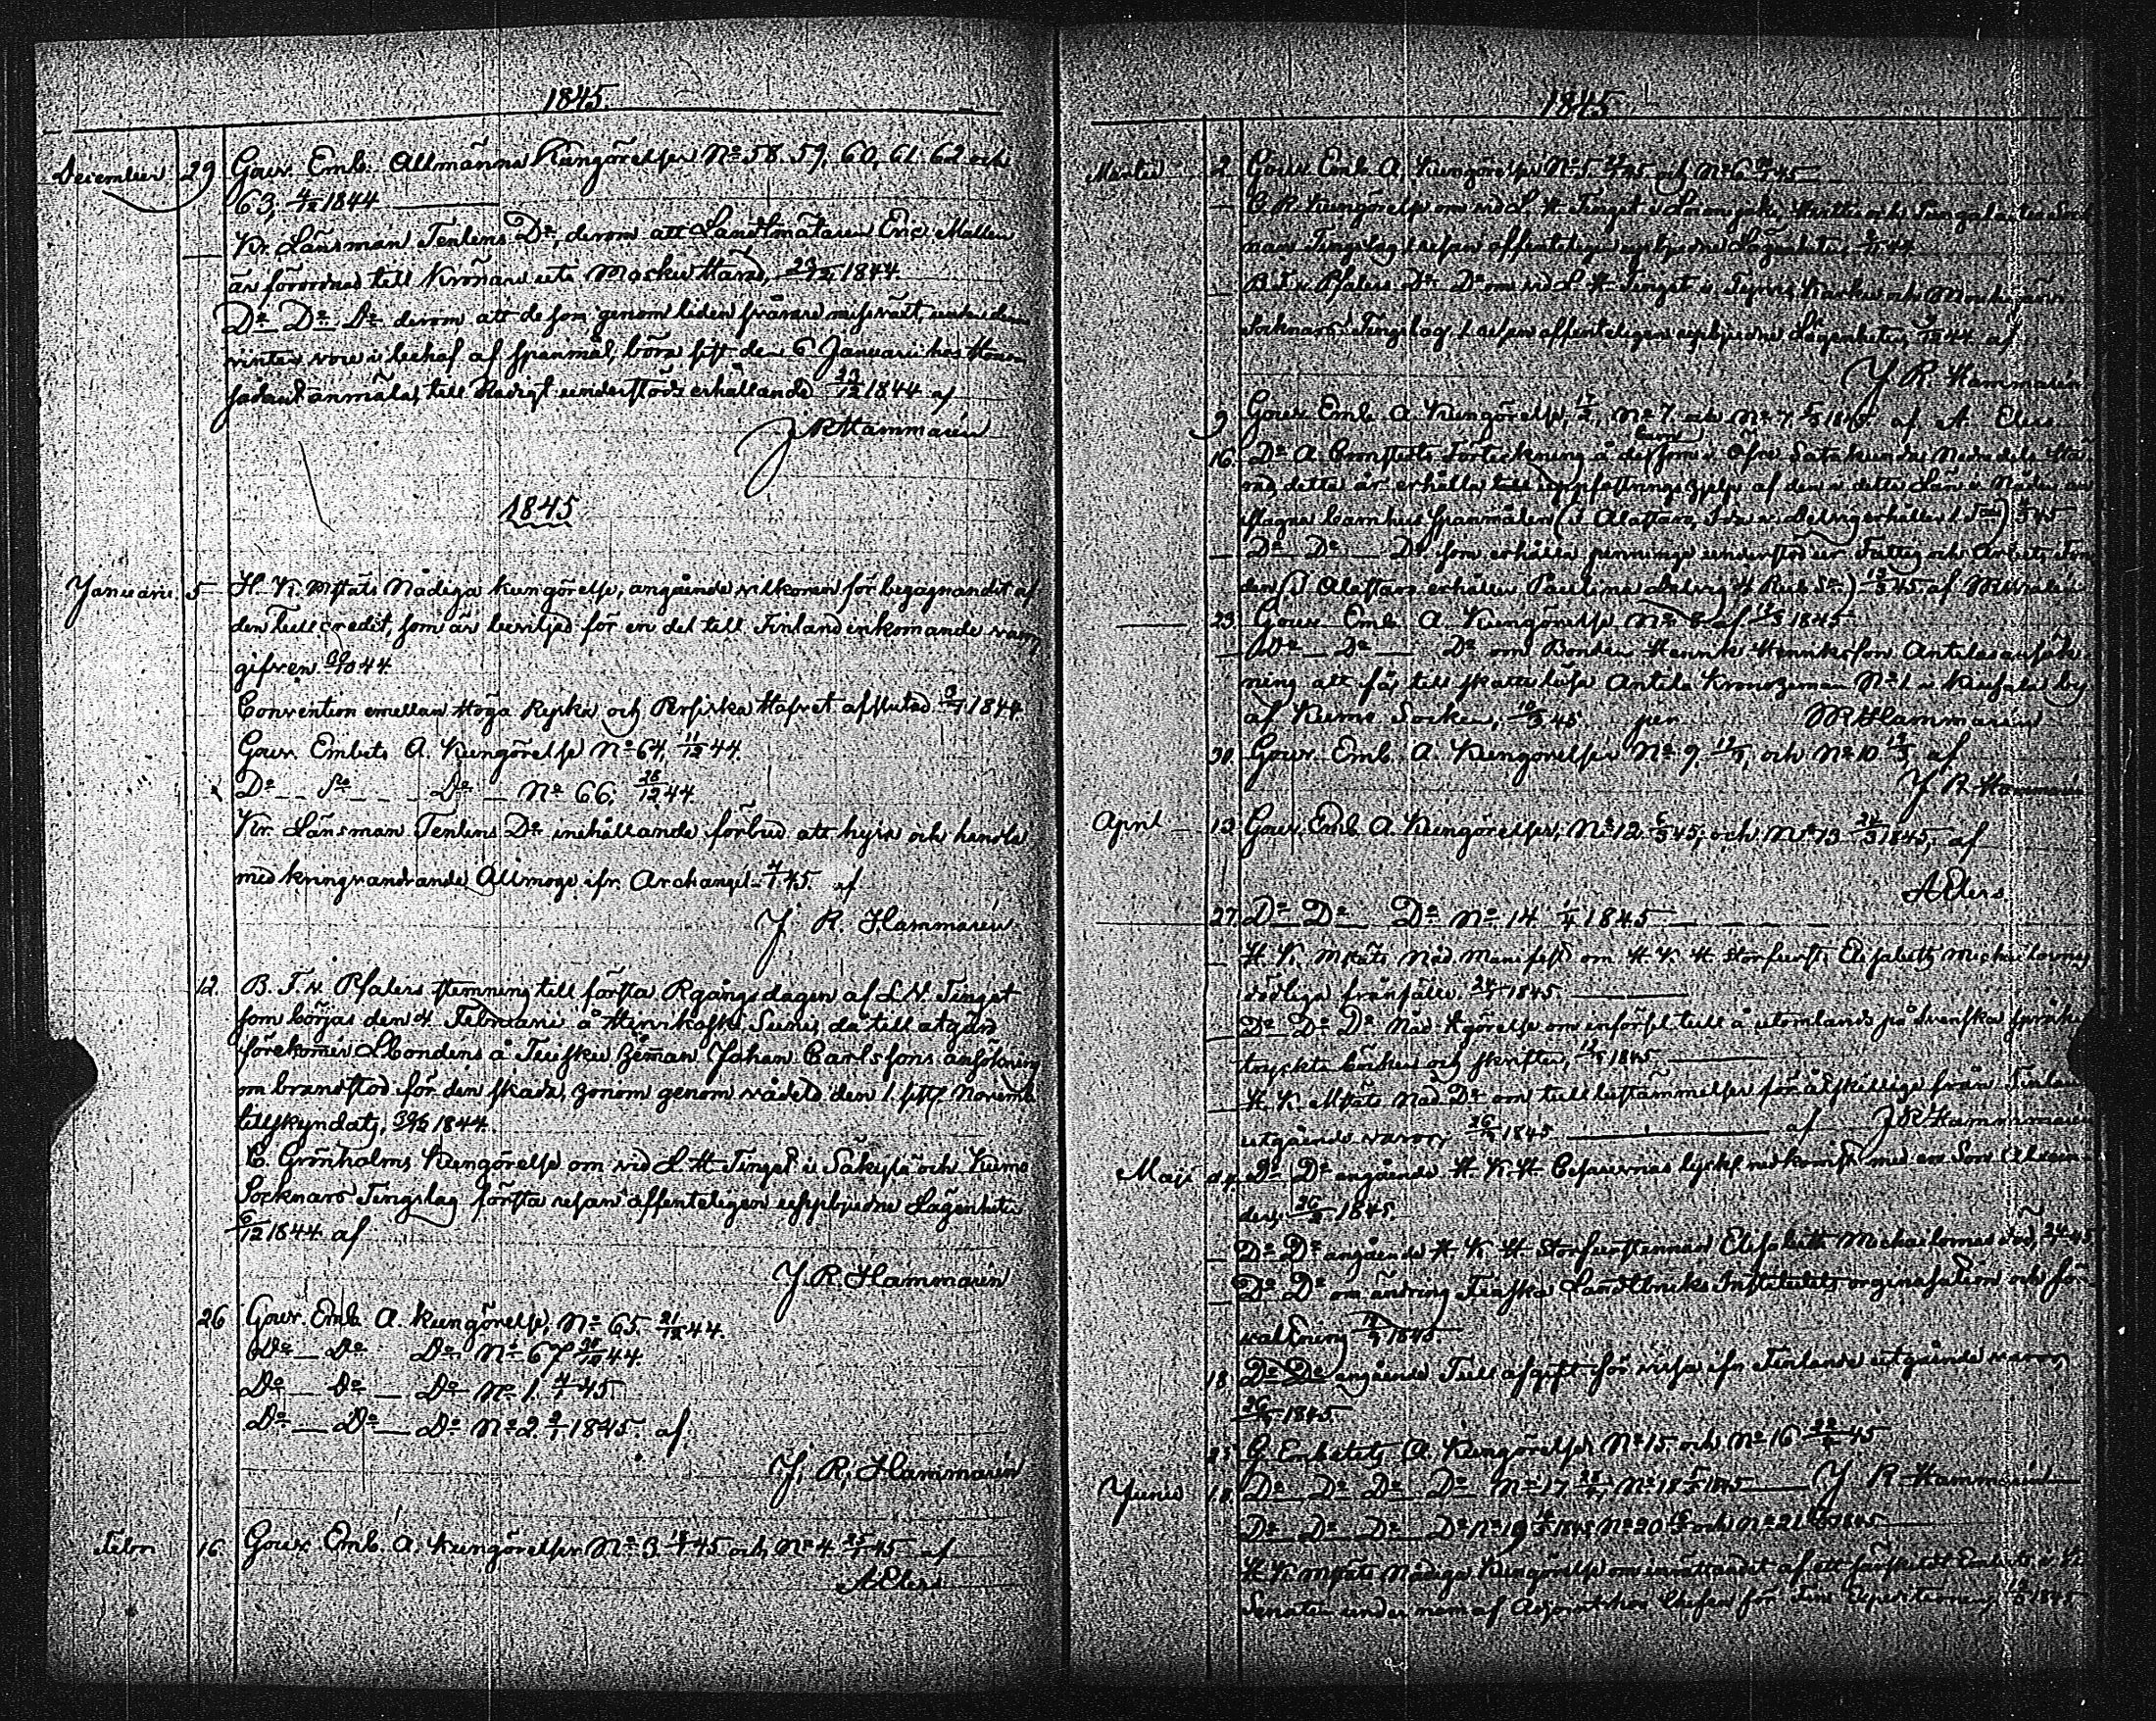 1845.
December 29 Gouv. Emb. Allmänna Kungörelser No 58. 59, 60, 61. 62 och
63, 4/12 1844
Kr. Länsman Tenlens Do, derom att Landtmätaren Eric Mallen
är förordnad till Kronans Mosku Härad, 23/12 1844.
Do Do Do derom att de som genom liden svårare missväxt, under denna
vinter vore i behof af spanmål, böra sist den 6 Januarii hos honom
sådant anmäla, till understöds erhållande 23/12 1844 af
J R Hammarén
1845
Januarii 5 H. K. Mstäts Nådiga kungörelse, angående vilkoren för begagnandet af
den tull credit, som är beviljad för en del till Finland inkomande varor
gifven 30/10 44.
Convention emellan Höga Ryska och Persiska Hofvet afslutad 3/7 1844
Gouv. Embets A. Kungörelse No 64, 11/12 44.
Do Do Do No 66, 28/12 44.
Kr. Länsman Tenlens Do inehållande förbud att hysa och handla
med kringvandrande Allmoge ifr. Archangel 4/1 45. af
J R. Hammarén
12. B. F. v. Pfalers stemning till första Rgångs dagen af L. V. Tinget
som börjas den 4 Februarii å Henrikoski Sunis, då till atgärd
förekommer Lbondens å Tuiskun Heman Johan Carlssons ansökning
om brandstod för den skada, honom genom vådeld den 1. sistl Novemb
tillskyndats, 30/12 1844.
C. Grönholms Kungörelse om vid L. H. Tinget i Säkylä och Kumo
Socknars Tingslag första resan offenteligen uppbjudne Lägenheter
6/12 1844 af
J. R. Hammarén
26 Gouv. Emb A. kungörelse, No 65. 21/12 44.
Do Do Do No 67 30/12 44.
Do Do Do No 1. 4/1 45.
Do Do Do No 2 9/1 1845. af
J. R. Hammarén
Febr 16 Gouv. Emb. A. Kungörelser No 3. 18/1 45 och No 4. 25/1 45 af
A Elers
1845
Martii 2. Gouv. Emb. A. Kungörelser No 5 45 och No 6 45
Kungörelse om vid L. H. Tinget i Loimijoki, Huittis och Sock
nars Tingslag 1 resan offenteligen uppbjudne Lägenheter, 44
B. F. v. Pfalers Do Do om vid L H Tinget i Tyrvis, Karku och Mouhijärvi
Socknars Tingslag 1 resan offenteligen uppbjudne Lägenheter, 12 44 af
J R Hammarén
9 Gouv Emb A Kungörelse, 17/2, No 7 och No 7 1845. af A. Elers
16. Do A. Cronstedts Förteckning å de barn som i Öfre Satakunda Nedredels Hä
rad, detta år erhålla uppfostrings hjelp af den i detta Län i Nåder an
slagna barnhus spanmålen (i Alastaro, erhåller 1. Tna) 45
Do Do Do som erhålla penninge understöd ur Fattig och Arbets Fon
den (i Alastaro erhåller Paulina 4 Rub Sr.) 45 af
23. Gouv Emb A Kungörelse No 8 af 1845
Do Do Do om Bonden Henrik Henriksson Antilas ansök
ning att få till skatte lösa Antila Kronoheman No 1 i by
af Kumo Socken, 10/3 45. per M Hammarén
30. Gouv. Emb. A. Kungörelser No 9, och No 10 af
J R Hammarén
April 13 Gouv. Emb. A. Kungörelser, No 12 5/3 45, och No 13 1845, af
A Elers.
27. Do Do Do No 14 1/4 1845
H. K. Mstäts Nåd. Manifest om H. K. H Storfurst. Elisabeth Michailovnas
dödliga frånfälle. 1845.
Do Do Do Nåd. Kgörelse om införsel tull å utomlands på Svenska språket
tryckte böcker och skrifter, 1845
H. K. Mstäts Nåd Do om tull bestämmelser för åtskillige från Finland
utgående varor, 26/2 1845 af J R Hammarén
Maji d 4. Do Do angående H. K. H Cesarevnas lyckl. nedkomst med en Son Alexan
der, 26/2 1845.
Do Do angående H K H Storfurstinnan Elisabeth Michailovnas död, 45
Do Do om ändring Finska Landtbruks Institutets orginasation och för
valtning 1845.
18. Do Do angående Tull afgift för vissa ifr Finland utgående varor
26/2 1845
25. G. Embetets A. Kungörelse, No 15. och No 16 22/4 45
Junii 1.8. Do Do Do Do No 17 No 18 1845 J R Hammarén
Do Do Do Do No 19 1845 No 20 och No 21 1845
H K Mstäts Nådiga Kungörelse om inrättandet af ett särskildt Embete i
Senaten under namn af Adjoint hos Chefen för Fins Expeditionen, 1845